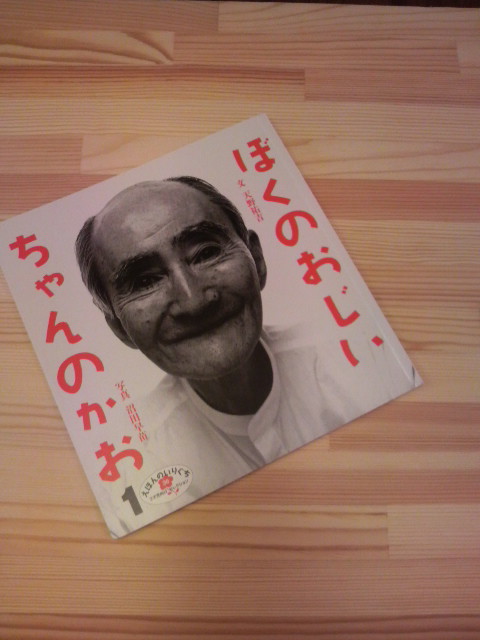 ぼくのおじい
文 天野祐吉
ちゃんのかお
写真 沼田早苗
えほんのいりぐち
1